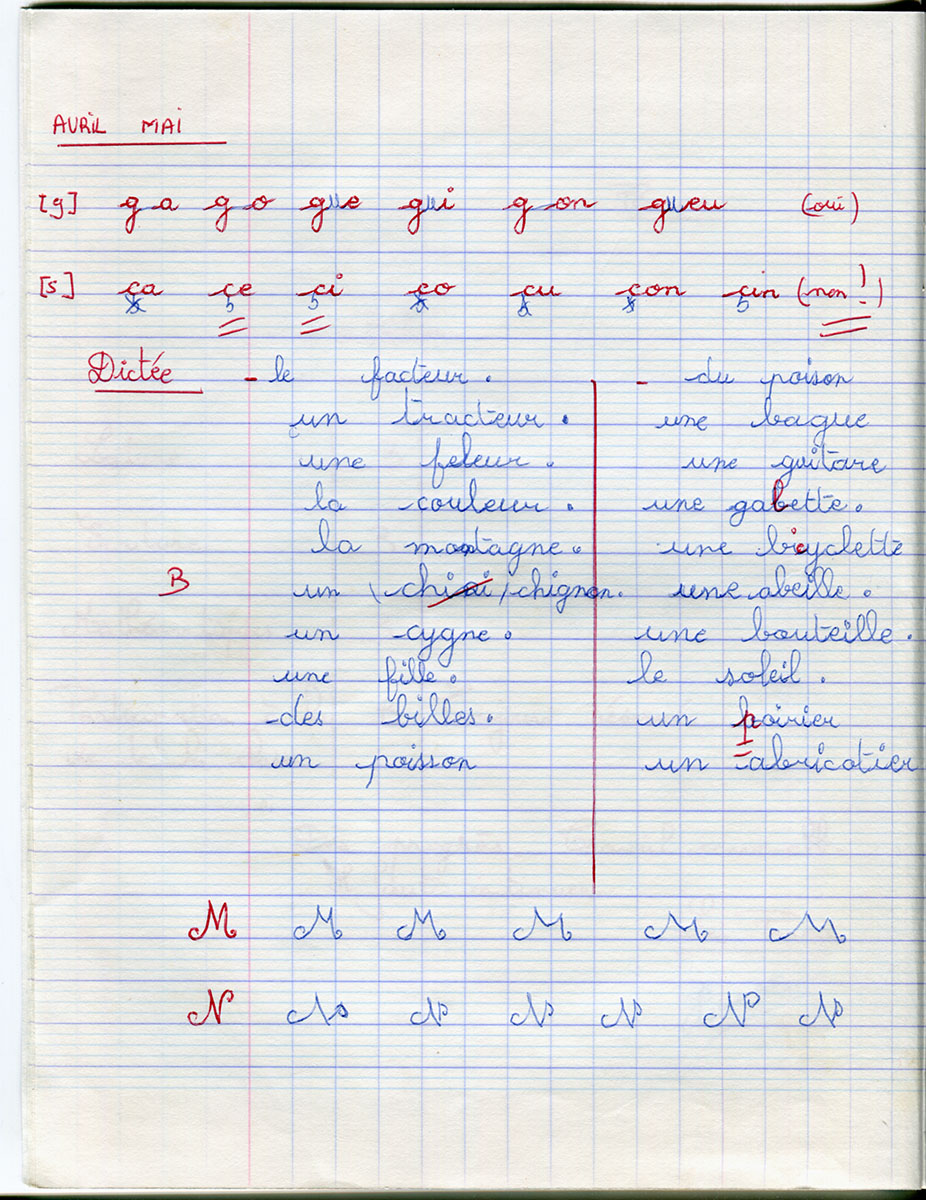 AVRIL MAI
[g] ga go gue gui gon gueu (oui)
[s] ca ce ci co cu con cin (non!)
Dictée
- le facteur.
un tracteur.
une feleur.
la couleur.
la montagne.
B
un (chiai) chignon.
un cygne.
une fille.
-des billes.
un poisson
- du poison
une bague
une guitare
une gabette.
une bicyclette
une abeille.
une bouteille.
le soleil.
un poirier
un abricotier
M M M M M M
N N N N N N N